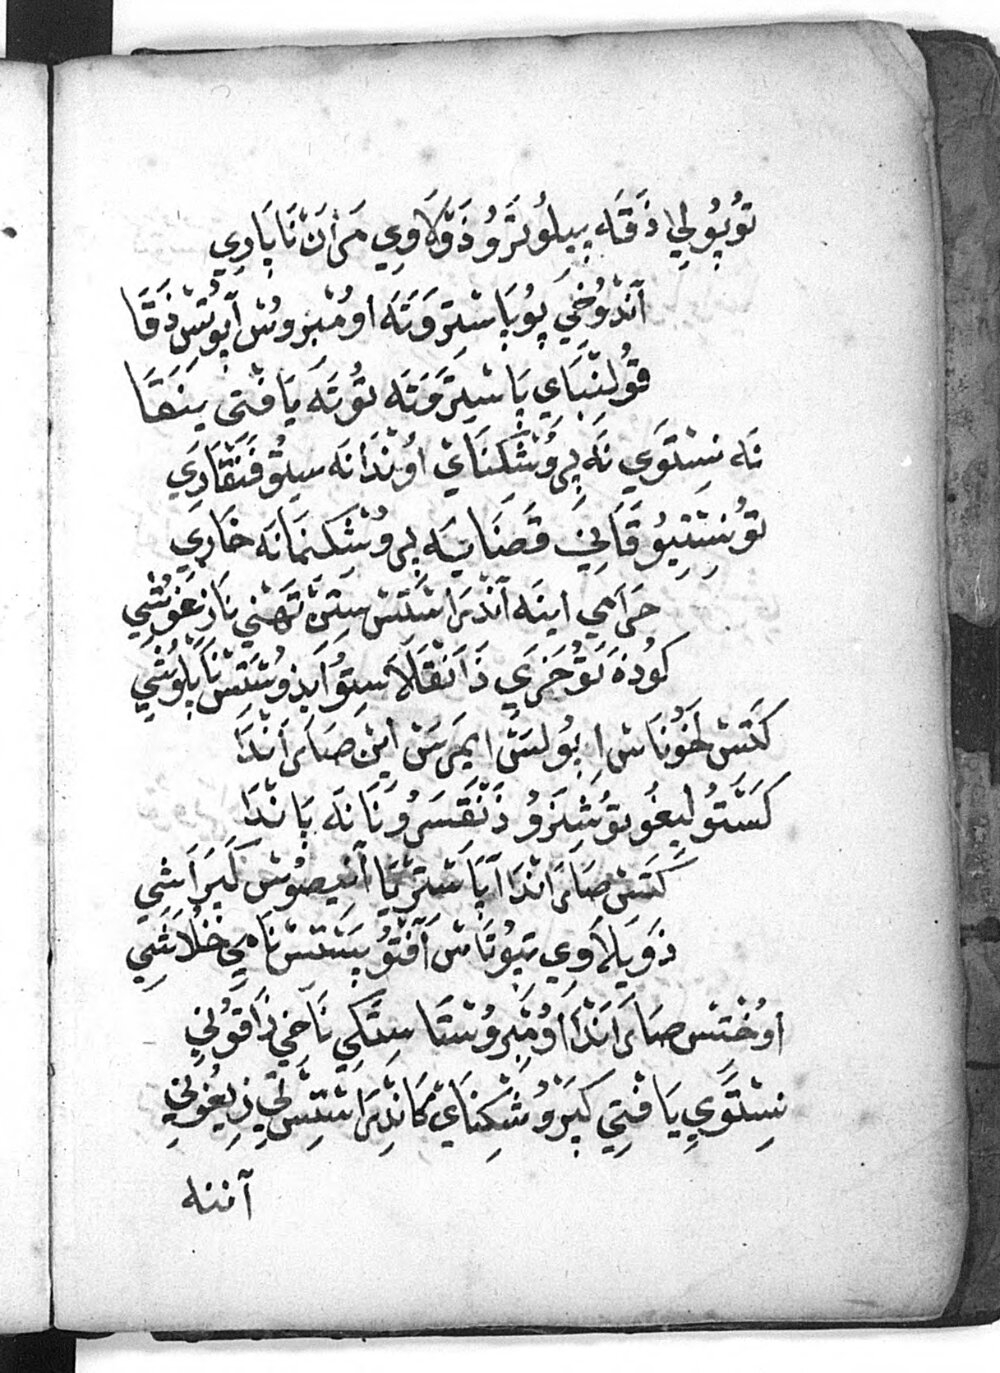 تُوپُولِي ذَقَلَه بِيلُوتَرَوُ ذَوْلَاوِي مَرَانْ نَاپَاوِي
آنْدُوخِي پُوپَاسْتِرَوَتَه اُومْبِرُوسْ آپُوتِسْ ذَقَا
قُولِنْبَايِ پَاسْتِرَوَتَه تُوتَه يَافْتِى بِنَقَا
نَه نِسْتَوِي نَه بِرُوشْكِنَايْ اُونْدَانَه سِيتُو فَنَقَارِي
تُونِسْتِيُو قَالِي قَضَايَه بِرُوشْكِنَمَانَه خَارِي
حَرَامِي اينَه آنْدَرَاسْتَسْ سِتِسْ تَهْنِي نَازِغُوشِي
كُوذَه تُوخَرِي ذَانْقَلَا سِتُو اَيْذُوسْتِسْ نَاپْلُوشِي
كَتِسْ لَخُونَاسْ اِپُولِسَسْ ايمَرِسَسْ اِيسْ صَارَانْدَا
كَسْتُو لِيغُو تُوشِرَوُ ذَنْقَسَرُو نَانَه پَانْدَا
كَتِسْ صَارَانْدَا آپَاسْتِرِيَا آنِيصُوسْ كَيَرَاشِي
ذَوَيْلَاوِي تِيُوتَاسْ آفْتُو پِسْتِسْ نَامِي خَلَاشِي
اُوخْتِسْ صَارَانْدَا اُومْبِرُوسْتَا سِتَكِي نَاخِي ذَاقُونِي
نِسْتَوِي يَافْتِي كَبِرُوشْكِنَايْ كَانْدِرَاسْتِسْ لِي زِيغُونِي
آننه